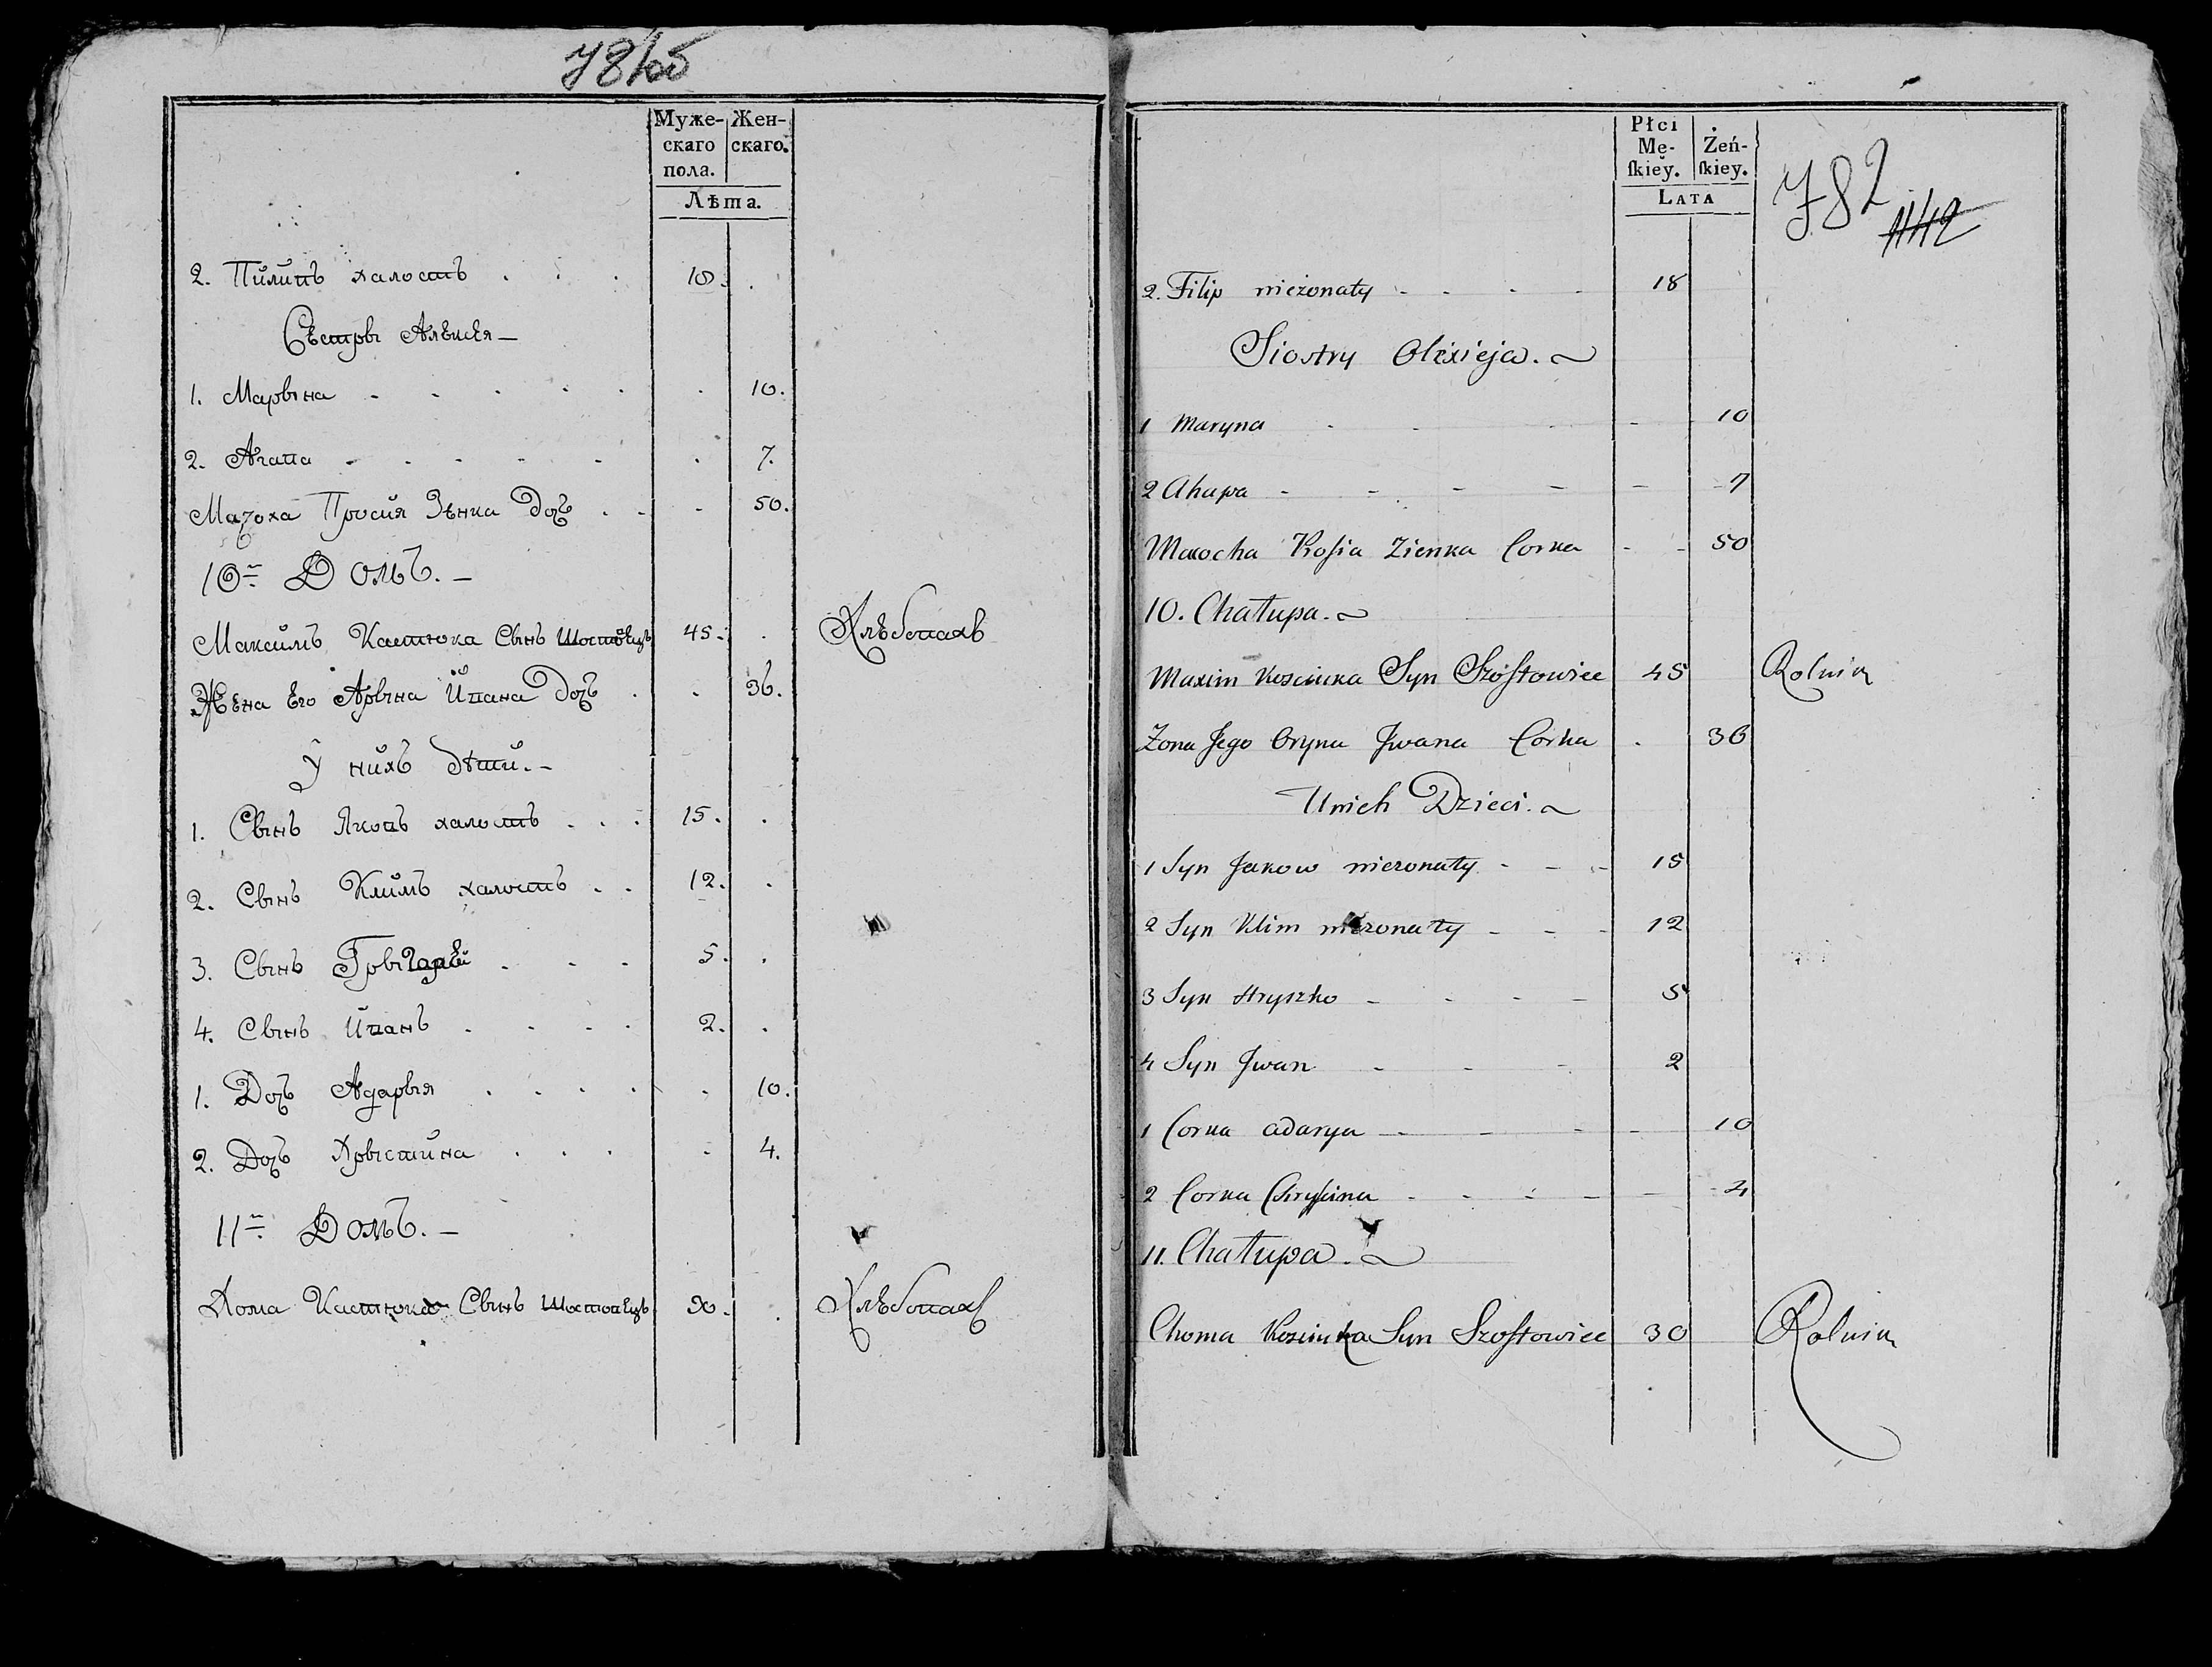 781об
Муже-
скаго
пола.
Жен-
скаго.
Лѣта.
2. Пилипъ халостъ 18.
Сѣстры Алѣксѣя
1. Марына 10.
2. Агапа 7.
Мачоха Просия Зѣнка Дочъ 50.
10й Домъ.
Максимъ Кастюка Сынъ Шостовѣцъ 45. Хлѣбопахъ
Жѣна Его Арына Ивана Дочъ 36.
У нихъ дѣти.
1. Сынъ Яковъ халостъ 15.
2. Сынъ Климъ халостъ 12.
3. Сынъ 5.
4. Сынъ Иванъ 2.
1. Дочъ Адарыя 10.
2. Дочъ Хрыстина 4.
11й Домъ.
Хома Кастюка Сынъ Шостовѣцъ 30. Хлѣбопахъ
Płci
Mę-
ſkiey.
Żeń-
ſkiey.
LATA
782
1142
2. Filip nieżonaty 18
Siostry Olexieja.
1 Maryna 10
2 Ahapa 7
Macocha Prosia Zienka Corka 50
10. Chałupa.
Maxim Kosciuka Syn Szostowiec 45 Rolnik
Zona Jego Oryna Jwana Corka 36
U nich Dzieci.
1 Syn Jakow niezonaty 15
2 Syn Klim niezonaty 12
3 Syn Hryszko 5
4 Syn Jwan 2
1 Corka Adarya 10
2 Corka 4
11. Chałupa.
Choma Kosciuka Syn Szostowiec 30 Rolnik